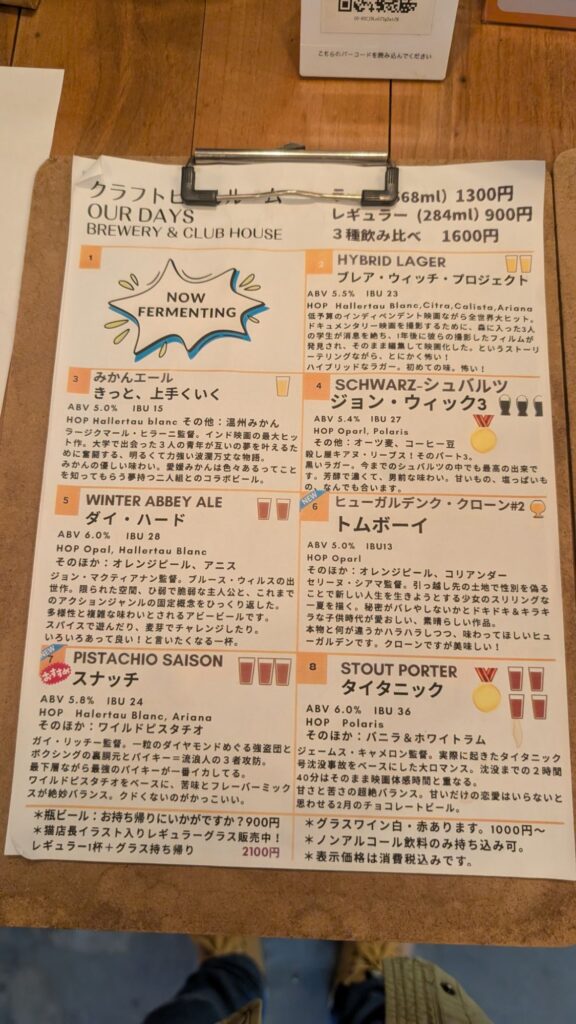 こちらのバーコードを読み込んでください
クラフトビ ルーム
OUR DAYS
BREWERY & CLUB HOUSE
568ml) 1300円
レギュラー (284ml) 900円
3種飲み比べ 1600円
1
NOW
FERMENTING
2
HYBRID LAGER
ブレア・ウィッチ・プロジェクト
ABV 5.5% IBU 23
HOP Hallertau Blanc,Citra,Calista,Ariana
低予算のインディペンデント映画ながら全世界大ヒット。
ドキュメンタリー映画を撮影するために、森に入った3人
の学生が消息を絶ち、1年後に彼らの撮影したフィルムが
発見され、そのまま編集して映画化した。というストーリ
ーテリングながら、とにかく怖い!
ハイブリッドなラガー。初めての味。怖い!
3
みかんエール
きっと、上手くいく
ABV 5.0% IBU 15
HOP Hallertau blanc その他:温州みかん
ラージクマール・ヒラーニ監督。インド映画の最大ヒッ
ト作。大学で出会った3人の青年が互いの夢を叶えるため
に奮闘する、明るくて力強い波瀾万丈な物語。
みかんの優しい味わい。愛媛みかんは色々あるってこと
を知ってもらう夢持つ二人組とのコラボビール。
4
SCHWARZ-シュバルツ
ジョン・ウィック3
ABV 5.4% IBU 27
HOP Oparl, Polaris
その他:オーツ麦、コーヒー豆
殺し屋キアヌ・リーブス!そのパート3。
黒いラガー。今までのシュバルツの中でも最高の出来で
す。芳醇で濃くて、男前な味わい。甘いもの、塩っぱいも
の、なんでも合います。
5
WINTER ABBEY ALE
ダイ・ハード
ABV 6.0% IBU 28
HOP Opal, Hallertau Blanc
そのほか:オレンジピール、アニス
ジョン・マクティアナン監督。ブルース・ウィルスの出
世作。限られた空間、ひ弱で脆弱な主人公と、これまで
のアクションジャンルの固定概念をひっくり返した。
多様性と複雑な味わいとされるアビービールです。
スパイスで遊んだり、麦芽でチャレンジしたり。
いろいろあって良い!と言いたくなる一杯。
NEW
6
ヒューガルデンク・クローン#2
トムボーイ
ABV 5.0% IBU13
HOP Oparl
そのほか:オレンジピール、コリアンダー
セリーヌ・シアマ監督。引っ越し先の土地で性別を偽る
ことで新しい人生を生きようとする少女のスリリングな
一夏を描く。秘密がバレやしないかとドキドキ&キラキラ
な子供時代が愛おしい、素晴らしい作品。
本物と何が違うかハラハラしつつ、味わってほしいヒュ
ーガルデンです。クローンですが美味しい!
7
おすすめ
PISTACHIO SAISON
スナッチ
ABV 5.8% IBU 24
HOP Halertau Blanc, Ariana
そのほか:ワイルドピスタチオ
ガイ・リッチー監督。一粒のダイヤモンドめぐる強盗団と
ボクシングの裏胴元とパイキー=流浪人の3者攻防。
最下層ながら最強のパイキーが一番イカしてる。
ワイルドピスタチオをベースに、苦味とフレーバーミック
スが絶妙バランス。クドくないのがかっこいい。
8
STOUT PORTER
タイタニック
ABV 6.0% IBU 36
HOP Polaris
そのほか:バニラ&ホワイトラム
ジェームス・キャメロン監督。実際に起きたタイタニック
号沈没事故をベースにした大ロマンス。沈没までの2時間
40分はそのまま映画体感時間と重なる。
甘さと苦さの超絶バランス。甘いだけの恋愛はいらないと
思わせる2月のチョコレートビール。
*瓶ビール:お持ち帰りにいかがですか?900円
*猫店長イラスト入りレギュラーグラス販売中!
レギュラー1杯+グラス持ち帰り 2100円
*グラスワイン白・赤あります。1000円~
*ノンアルコール飲料のみ持ち込み可。
*表示価格は消費税込みです。